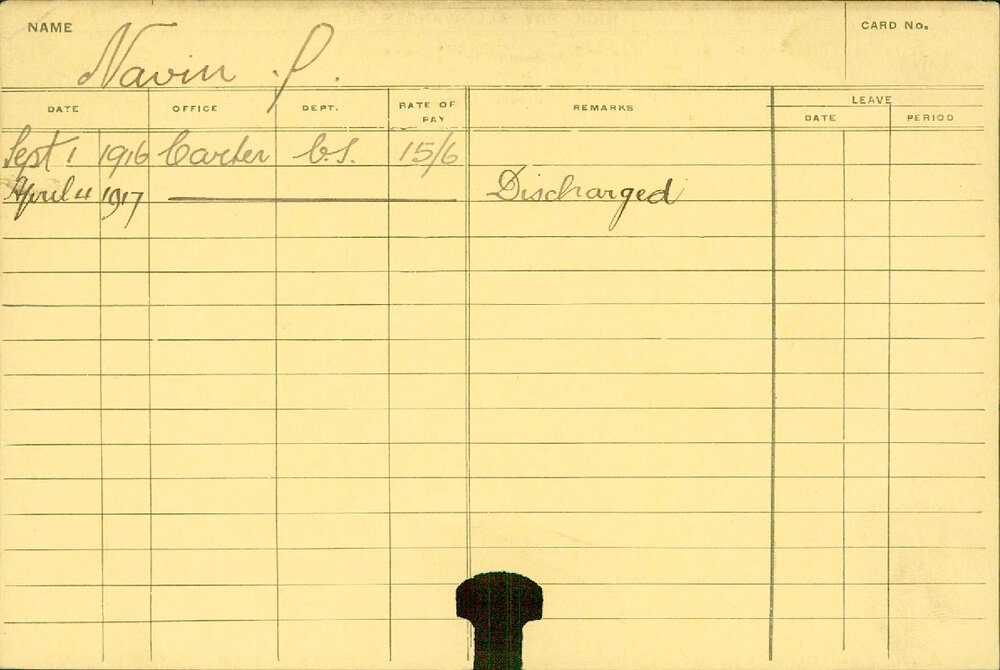 NAME
Navin P.
CARD No.
DATE OFFICE DEPT. RATE OF PAY REMARKS LEAVE
DATE PERIOD
Sept 1 1916 Carter C.S. 15/6
April 4 1917 Discharged